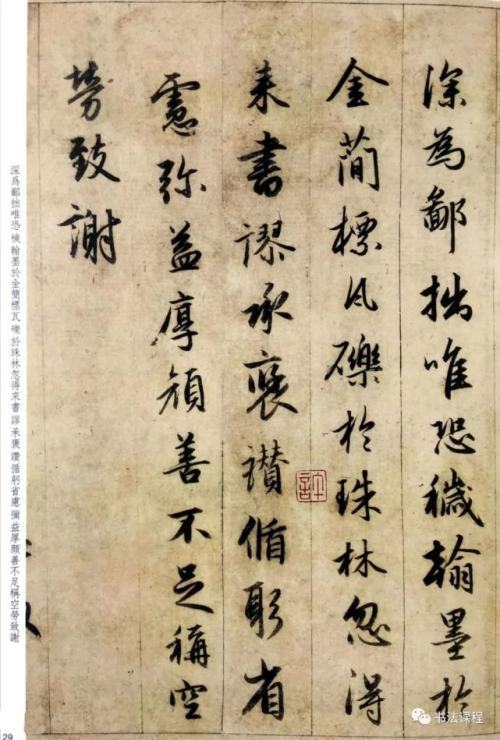 深為鄙拙唯恐穢翰墨於
金簡標瓦礫於珠林忽得
来書謬承褒讃循躬省
慮弥益厚顔善不足稱空
勞致謝
深爲鄙拙唯恐穢翰墨於金簡標瓦礫於珠林忽得來書謬承褒讚循躬省慮彌益厚顏善不足稱空勞致謝
29
书法课程